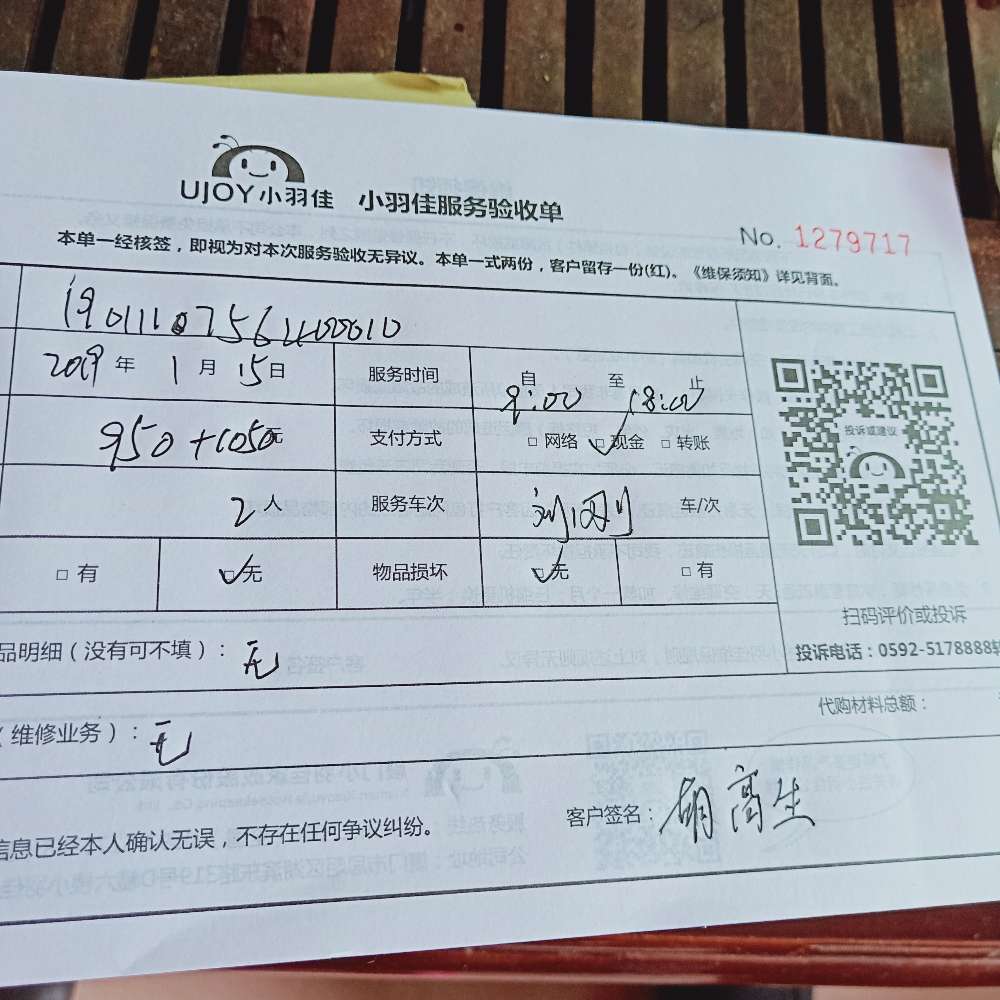 UJOY小羽佳 小羽佳服务验收单
No. 1279717
本单一经核签，即视为对本次服务验收无异议。本单一式两份，客户留存一份(红)。《维保须知》详见背面。
2019年 1月 15日 服务时间 自 8:00 至 18:00 止
950+1050元 支付方式 □网络 ☑现金 □转账
2人 服务车次 车/次
□有 ☑无 物品损坏 ☑无 □有
投诉或建议
扫码评价或投诉
投诉电话：0592-5178888转
品明细（没有可不填）： 无
代购材料总额：
（维修业务）： 无
信息已经本人确认无误，不存在任何争议纠纷。
客户签名：胡高生